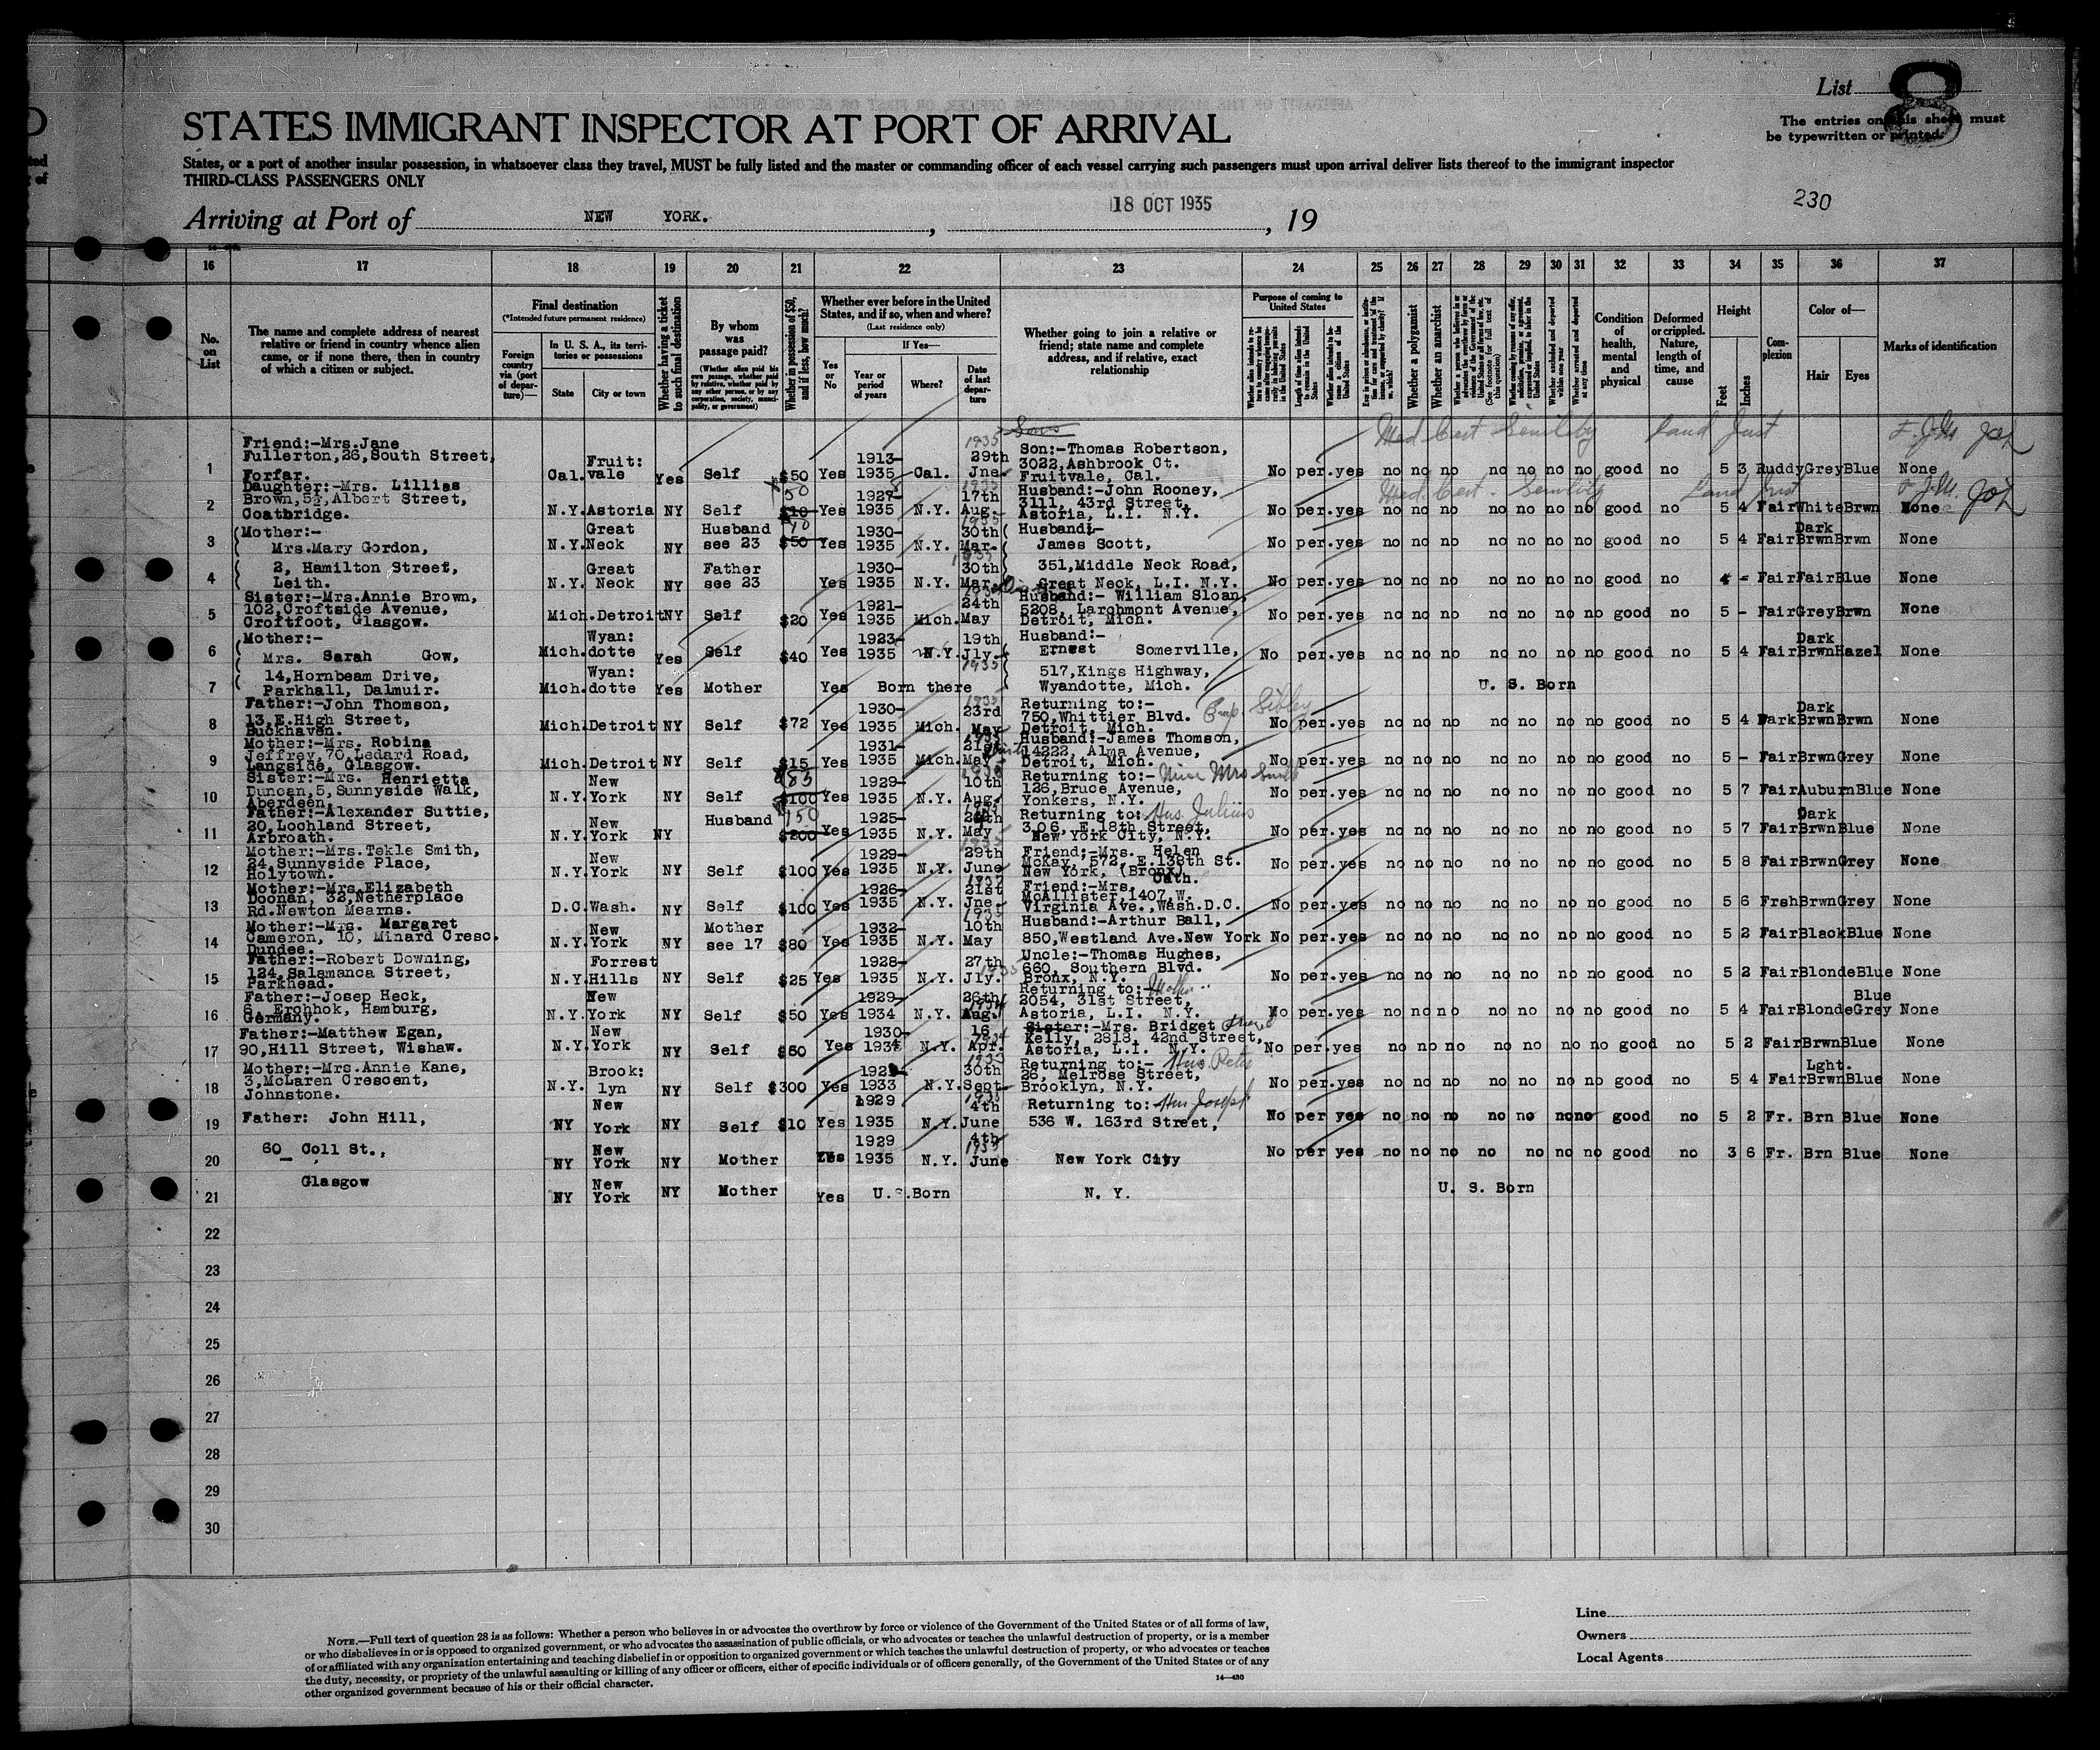 List 8
The entries on this sheet must
be typewritten or printed.
STATES IMMIGRANT INSPECTOR AT PORT OF ARRIVAL
States, or a port of another insular possession, in whatsoever class they travel, MUST be fully listed and the master or commanding officer of each vessel carrying such passengers must upon arrival deliver lists thereof to the immigrant inspector
THIRD-CLASS PASSENGERS ONLY
230
Arriving at Port of NEW YORK. , 18 OCT 1935 , 19
16 17 18 19 20 21 22 23 24 25 26 27 28 29 30 31 32 33 34 35 36 37
No. on List
The name and complete address of nearest relative or friend in country whence alien came, or if none there, then in country of which a citizen or subject.
Final destination
(*Intended future permanent residence)
Foreign country via (port of departure)—
In U. S. A., its territories or possessions
State
City or town
Whether having a ticket to such final destination
By whom was passage paid?
(Whether alien paid his own passage, whether paid by relative, whether paid by any other person, or by any corporation, society, municipality, or government)
Whether in possession of $50, and if less, how much?
Whether ever before in the United States, and if so, when and where?
(Last residence only)
Yes or No
If Yes—
Year or period of years
Where?
Date of last departure
Whether going to join a relative or friend; state name and complete address, and if relative, exact relationship
Purpose of coming to United States
Whether a polygamist
Whether an anarchist
Condition of health, mental and physical
Deformed or crippled. Nature, length of time, and cause
Height
Feet
Inches
Complexion
Color of—
Hair
Eyes
Marks of identification
Med Cert Senility
1 Friend:-Mrs.Jane Fullerton,26,South Street, Forfar. Cal. Fruit: vale Yes Self $50 Yes 1913- 1935 Cal. 1935 29th Jne Son:-Thomas Robertson, 3022,Ashbrook Ct. Fruitvale, Cal. No per. yes no no no no no no no good no 5 3 Ruddy Grey Blue None
Med. Cert. Senility
2 Daughter:-Mrs. Lillias Brown,5½,Albert Street, Coatbridge. N.Y. Astoria NY Self 50 $10 Yes 1927- 1935 N.Y. 1935 17th Aug. Husband:-John Rooney, 3111, 43rd Street, Astoria, L.I. N.Y. No per. yes no no no no no no no good no 5 4 Fair White Brwn None
3 Mother:- Mrs.Mary Gordon, N.Y. Great Neck NY Husband see 23 $50 Yes 1930- 1935 N.Y. 1935 30th Mar. Husband:- James Scott, No per. yes no no no no no no no good no 5 4 Fair Dark Brwn Brwn None
4 2, Hamilton Street, Leith. N.Y. Great Neck NY Father see 23 Yes 1930- 1935 N.Y. 1935 30th Mar. 351,Middle Neck Road, Great Neck, L.I. N.Y. No per. yes no no no no no no no good no 4 - Fair Fair Blue None
5 Sister:-Mrs.Annie Brown, 102,Croftside Avenue, Croftfoot, Glasgow. Mich. Detroit NY Self $20 Yes 1921- 1935 Mich. 24th May Husband:- William Sloan, 5208, Larchmont Avenue, Detroit, Mich. No per. yes no no no no no no no good no 5 - Fair Grey Brwn None
6 Mother:- Mrs. Sarah Gow, Mich. Wyan: dotte Yes Self $40 Yes 1923- 1935 N.Y. 19th Jly. 1935 Husband:- Ernest Somerville, No per. yes no no no no no no no good no 5 4 Fair Dark Brwn Hazel None
7 14,Hornbeam Drive, Parkhall, Dalmuir. Mich. Wyan: dotte Yes Mother Yes Born there 517,Kings Highway, Wyandotte, Mich. U. S. Born
8 Father:-John Thomson, 13,E.High Street, Buckhaven. Mich. Detroit NY Self $72 Yes 1930- 1935 Mich. 1935 23rd May Returning to:- 750,Whittier Blvd. Detroit, Mich. No per. yes no no no no no no no good no 5 4 Dark Dark Brwn Brwn None
9 Mother:-Mrs. Robina Jeffrey,70,Ledard Road, Langside, Glasgow. Mich. Detroit NY Self $15 Yes 1931- 1935 Mich. 1935 21st May Husband:-James Thomson, 14222, Alma Avenue, Detroit, Mich. No per. yes no no no no no no no good no 5 - Fair Brwn Grey None
10 Sister:-Mrs. Henrietta Duncan,5,Sunnyside Walk, Aberdeen. N.Y. New York NY Self 85 $100 Yes 1929- 1935 N.Y. 1935 10th Aug. Returning to:- 126,Bruce Avenue, Yonkers, N.Y. No per. yes no no no no no no no good no 5 7 Fair Auburn Blue None
11 Father:-Alexander Suttie, 20,Lochland Street, Arbroath. N.Y. New York NY Husband 150 $200 Yes 1925- 1935 N.Y. May Returning to:- Hus. Julius 306, E.18th Street, New York City, N.Y. No per. yes no no no no no no no good no 5 7 Fair Dark Brwn Blue None
12 Mother:-Mrs.Tekle Smith, 24,Sunnyside Place, Holytown. N.Y. New York NY Self $100 Yes 1929- 1935 N.Y. 1935 29th June Friend:-Mrs. Helen McKay, 572, E.138th St. New York, (Bronx). No per. yes no no no no no no no good no 5 8 Fair Brwn Grey None
13 Mother:-Mrs.Elizabeth Doonan, 32,Netherplace Rd.Newton Mearns. D.C. Wash. NY Self $100 Yes 1926- 1935 N.Y. 21st Jne Friend:-Mrs. Cath. McAllister,1407,W. Virginia Ave.,Wash.D.C. No per. yes no no no no no no no good no 5 6 Frsh Brwn Grey None
14 Mother:-Mrs. Margaret Cameron, 10, Minard Cresc. Dundee. N.Y. New York NY Mother see 17 $80 Yes 1932- 1935 N.Y. 1935 10th May Husband:-Arthur Ball, 850,Westland Ave.New York No per. yes no no no no no no no good no 5 2 Fair Black Blue None
15 Father:-Robert Downing, 124,Salamanca Street, Parkhead. N.Y. Forrest Hills NY Self $25 Yes 1928- 1935 N.Y. 27th Jly. 1935 Uncle:-Thomas Hughes, 660, Southern Blvd. Bronx, N.Y. No per. yes no no no no no no no good no 5 2 Fair Blonde Blue None
16 Father:-Josep Heck, 6, Erohhok, Hamburg, Germany. N.Y. New York NY Self $50 Yes 1929- 1934 N.Y. 26th Aug. 1934 Returning to:- Mother 2054, 31st Street, Astoria, L.I. N.Y. No per. yes no no no no no no no good no 5 4 Fair Blonde Blue Grey None
17 Father:-Matthew Egan, 90,Hill Street, Wishaw. N.Y. New York NY Self $60 Yes 1930- 1934 N.Y. 16 Apr. 1934 Sister:-Mrs. Bridget Kelly, 2818, 42nd Street, Astoria, L.I. N.Y. No per. yes no no no no no no no good no 5 2 Fair Brwn Blue None
18 Mother:-Mrs.Annie Kane, 3,McLaren Crescent, Johnstone. N.Y. Brook: lyn NY Self $300 Yes 1933 N.Y. 1933 30th Sept. Returning to:- Hus Peter 26, Melrose Street, Brooklyn, N.Y. No per. yes no no no no no no no good no 5 4 Fair Lght. Brwn Blue None
19 Father: John Hill, NY New York NY Self $10 Yes 1929 1935 N.Y. 1935 4th June Returning to: Hus Joseph 536 W. 163rd Street, No per yes no no no no no no no good no 5 2 Fr. Brn Blue None
20 60 Coll St., NY New York NY Mother Yes 1929 1935 N.Y. 4th 1935 June New York City No per yes no no no no no no no good no 3 6 Fr. Brn Blue None
21 Glasgow NY New York NY Mother Yes U.S.Born N. Y. U. S. Born
22
23
24
25
26
27
28
29
30
NOTE.—Full text of question 28 is as follows: Whether a person who believes in or advocates the overthrow by force or violence of the Government of the United States or of all forms of law,
or who disbelieves in or is opposed to organized government, or who advocates the assassination of public officials, or who advocates or teaches the unlawful destruction of property, or is a member
of or affiliated with any organization entertaining and teaching disbelief in or opposition to organized government or which teaches the unlawful destruction of property, or who advocates or teaches
the duty, necessity, or propriety of the unlawful assaulting or killing of any officer or officers, either of specific individuals or of officers generally, of the Government of the United States or of any
other organized government because of his or their official character.
14—430
Line
Owners
Local Agents